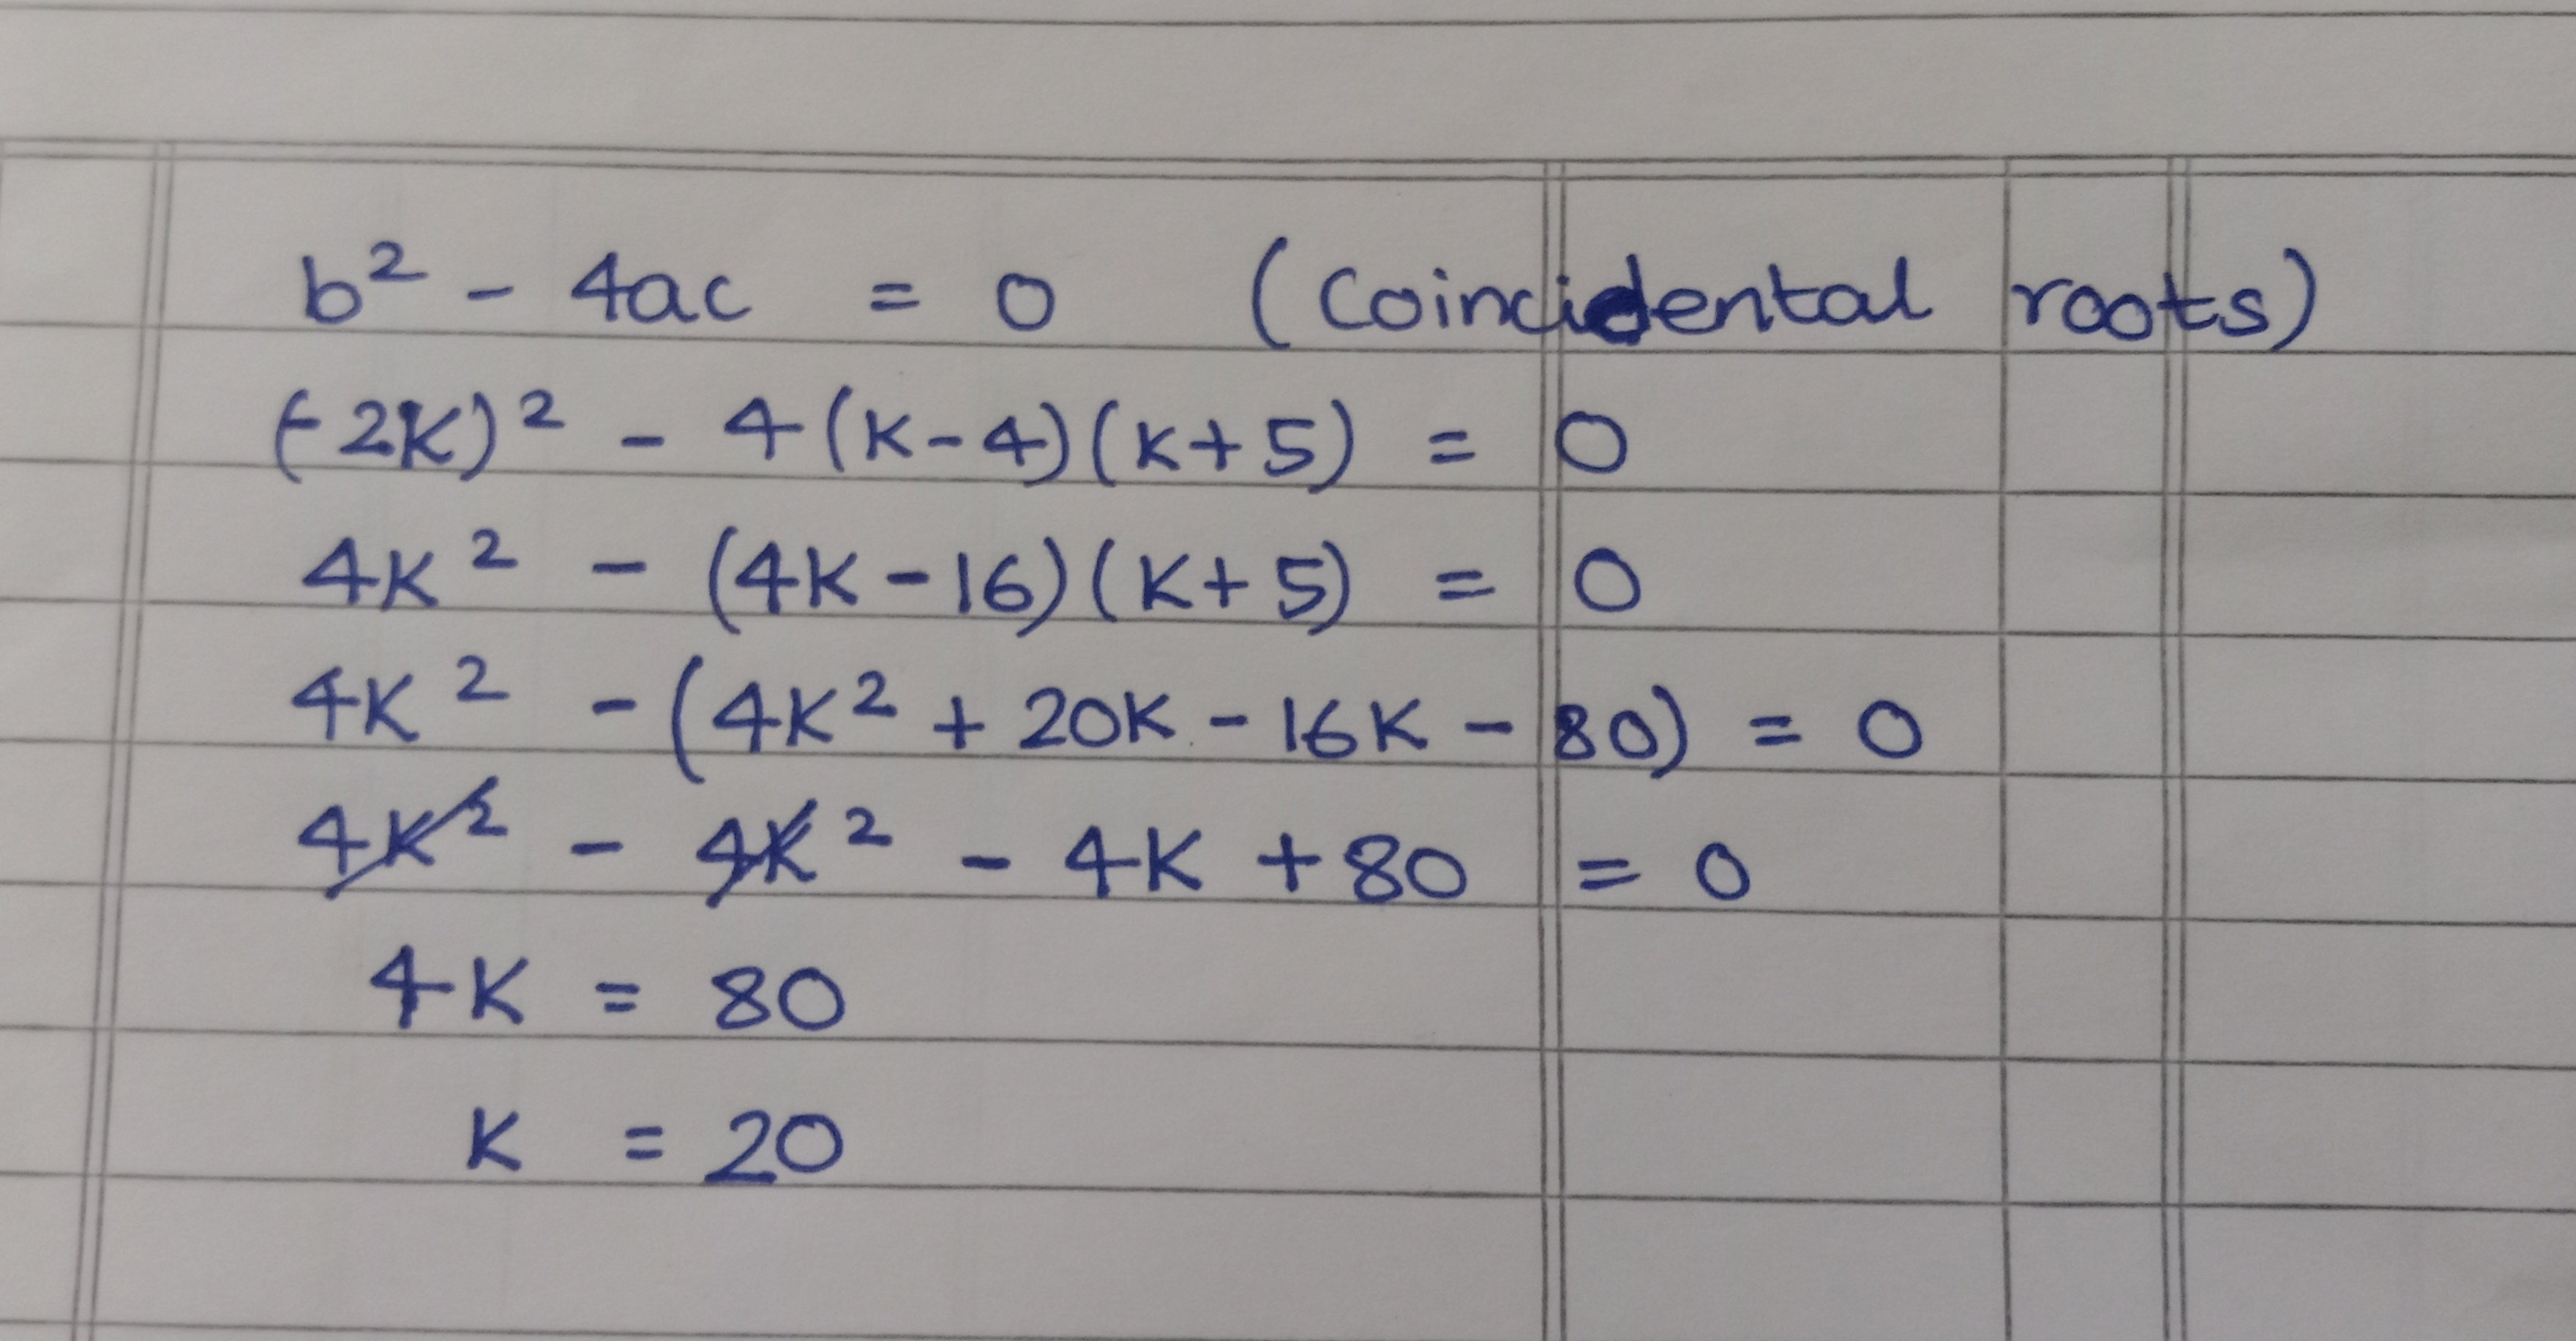 b² - 4ac = 0 (Coincidental roots)
(-2K)² - 4(K-4)(K+5) = 0
4K² - (4K-16)(K+5) = 0
4K² - (4K² + 20K - 16K - 80) = 0
4K² - 4K² - 4K + 80 = 0
4K = 80
K = 20